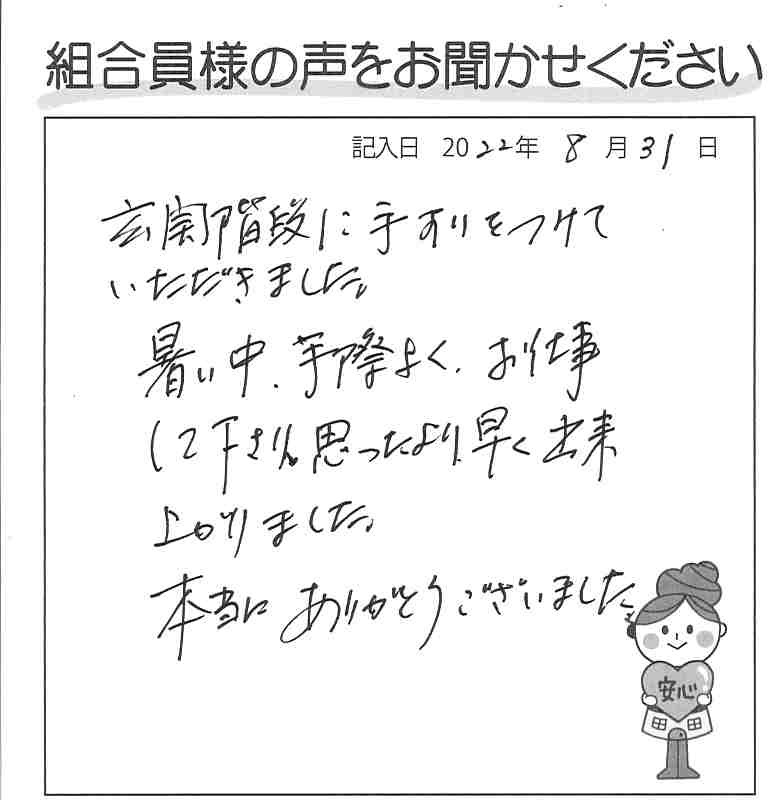 組合員様の声をお聞かせください
記入日 2022年 8月31日
玄関階段に手すりをつけて
いただきました。
暑い中、手際よく、お仕事
して下さり、思ったより早く出来
上がりました。
本当にありがとうございました。
安心